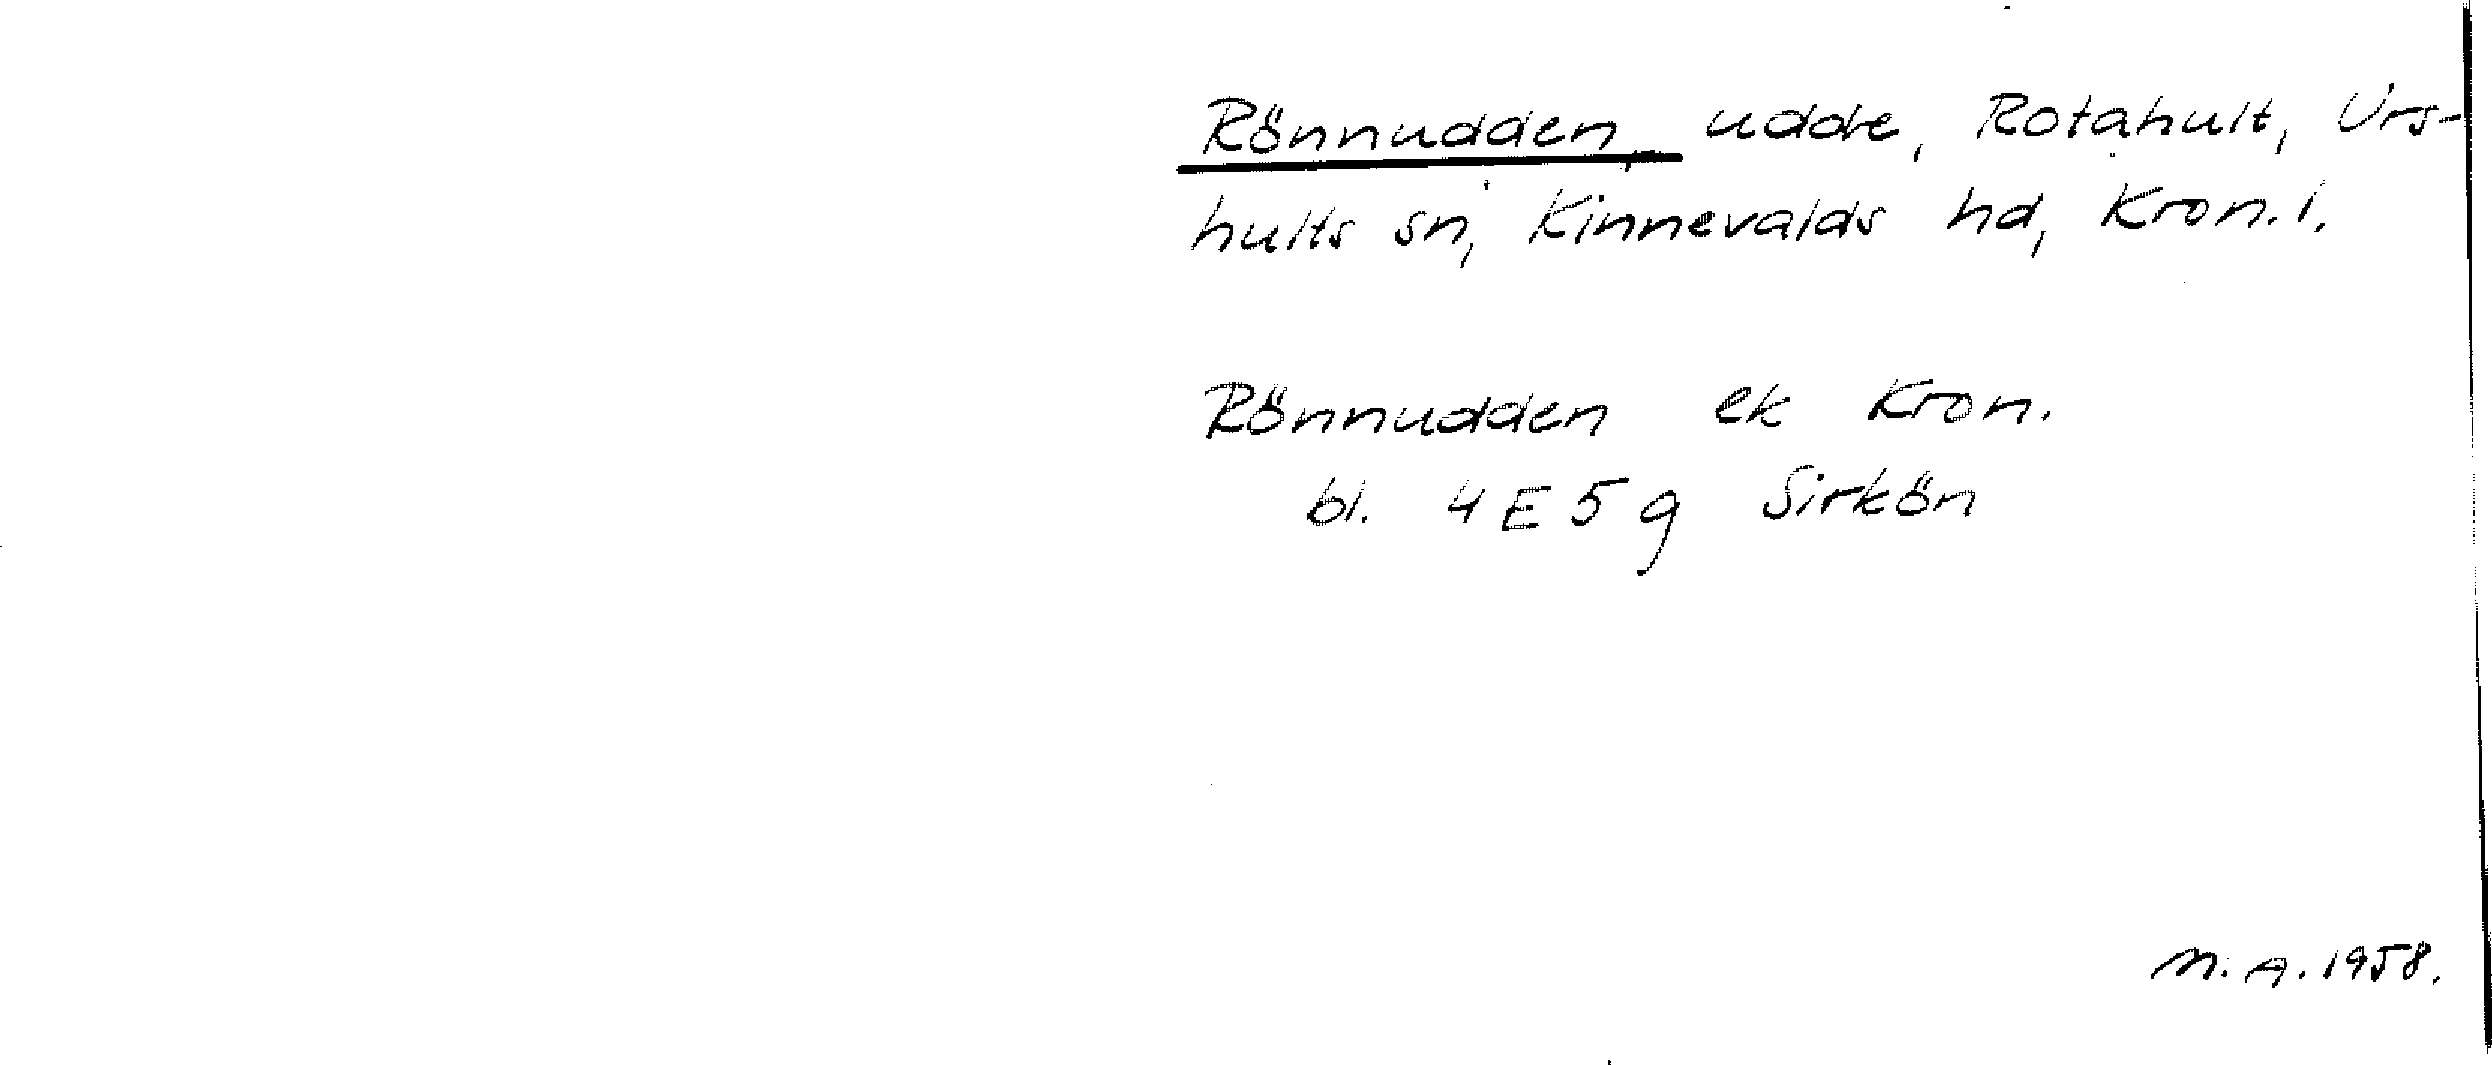 Rönnudden, udde, Rotahult, Urs-
hults sn, Kinnevalds hd, Kron. l.
Rönnudden ek Kron.
bl. 4E5g Sirkön
M. A. 1958.